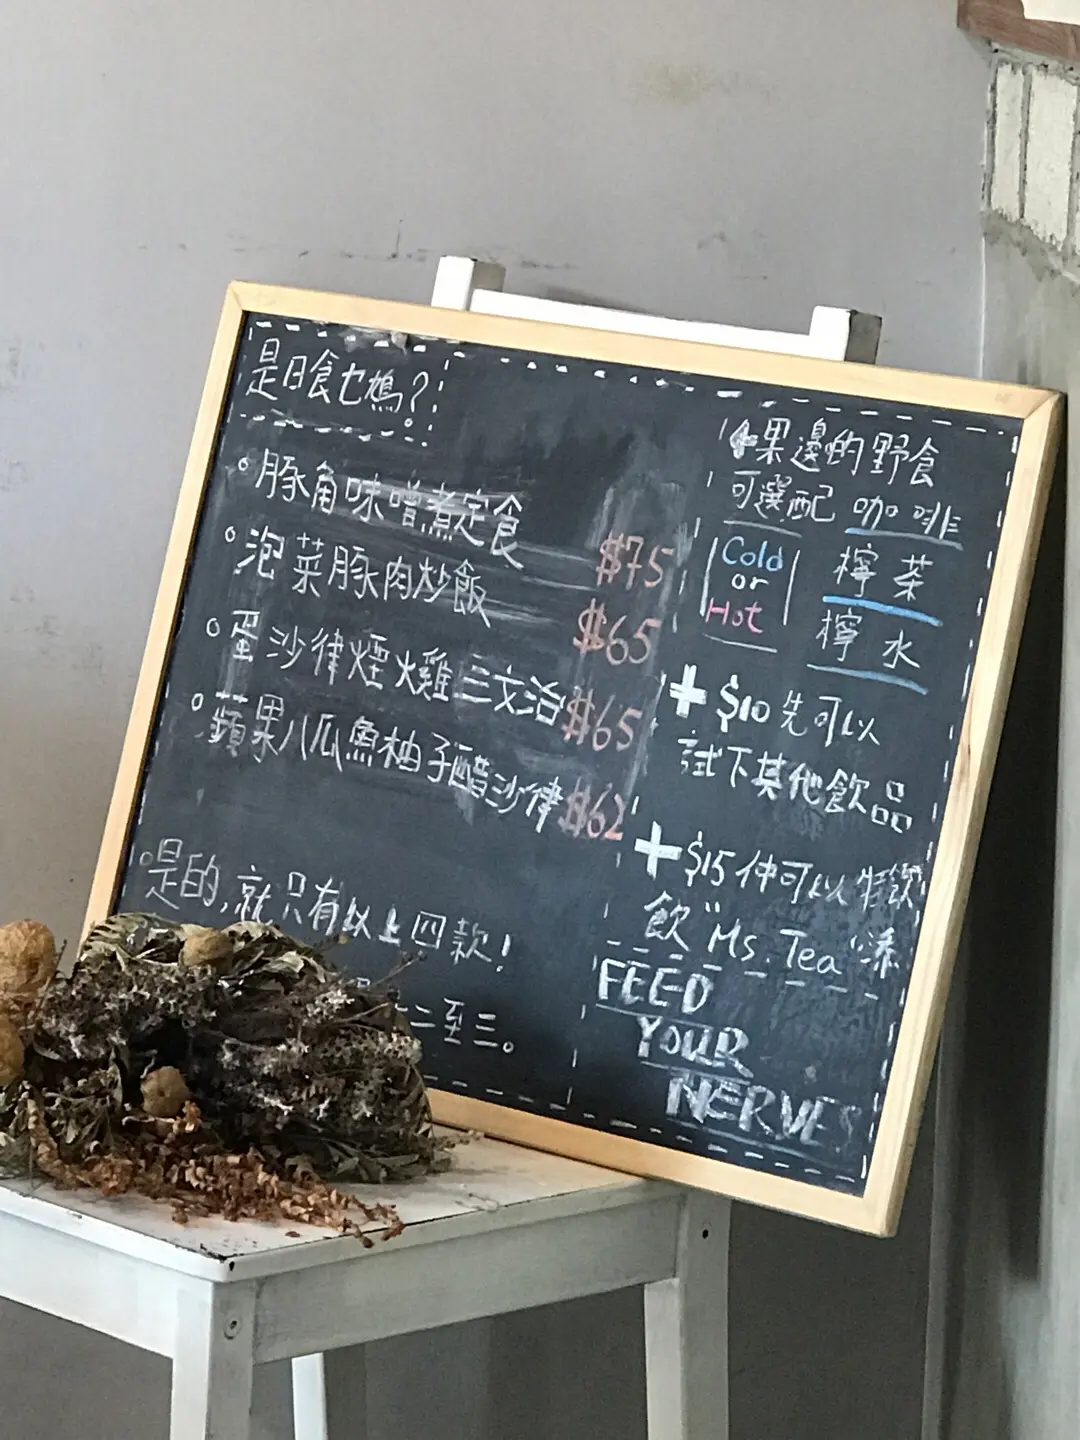 是日食乜鳩?
豚角味噌煮定食 $75
泡菜豚肉炒飯 $65
蛋沙律煙火雞三文治 $65
蘋果八爪魚柚子醋沙律 $62
是的,就只有以上四款!
二至三。
果邊的野食
可選配 咖啡
Cold or Hot
檸茶
檸水
+ $10 先可以
試下其他飲品
+ $15 仲可以
飲 "Ms. Tea"
FEED
YOUR
NERVES